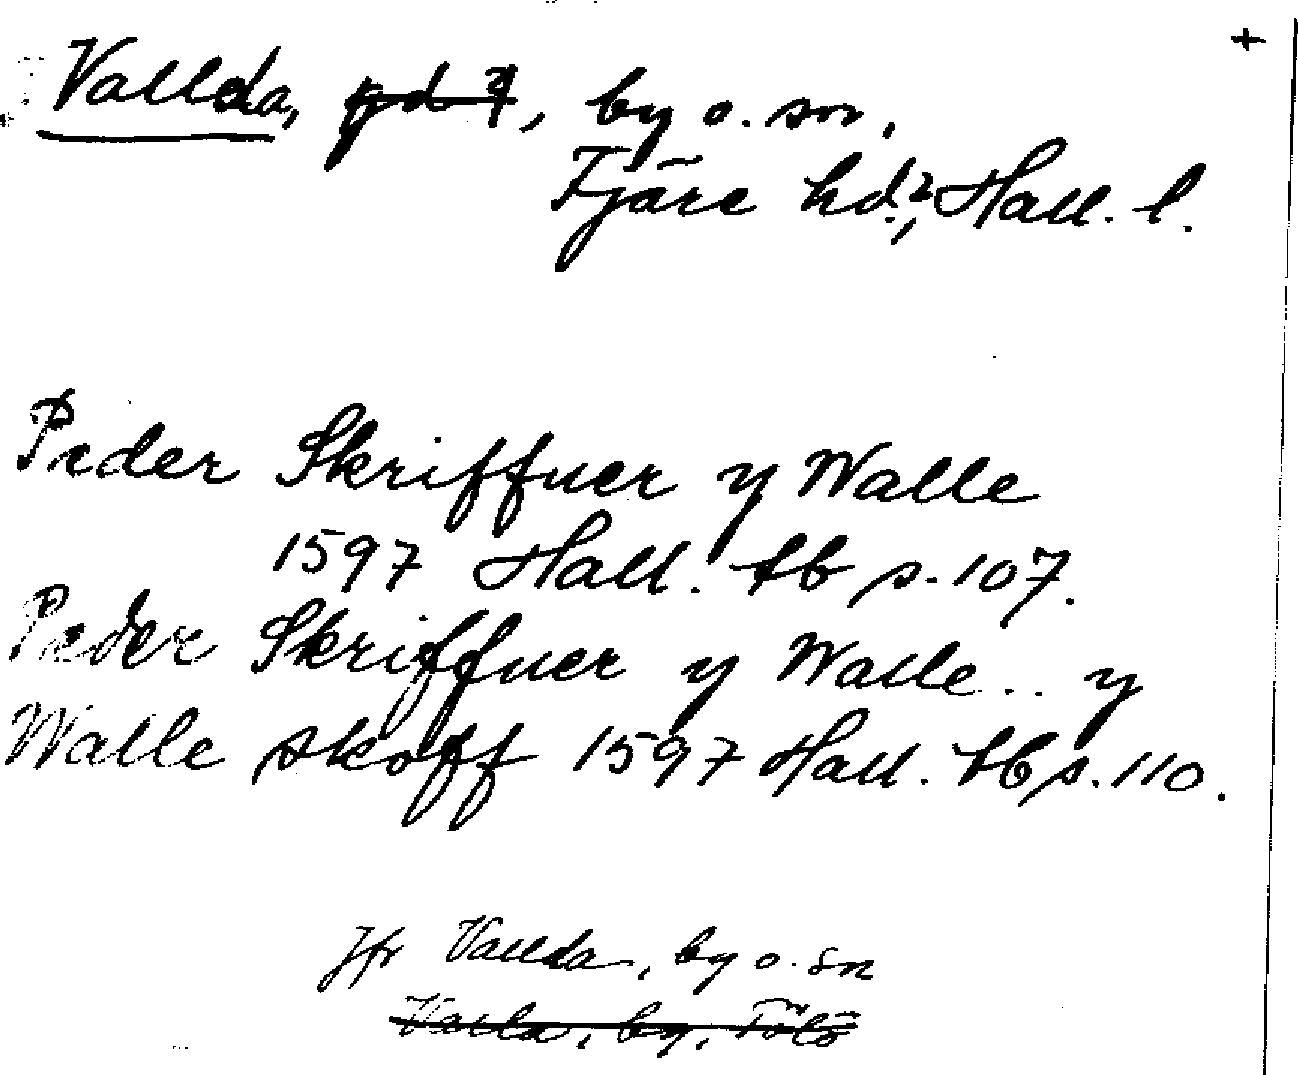 +
Vallda, gd?, by o. sn,
Fjäre hd?, Hall. l.
Peder Skriffuer y Walle
1597 Hall. tb s. 107.
Peder Skriffuer y Walle .. y
Walle skoff 1597 Hall. tb s. 110.
Jfr Vallda, by o. sn
Varla, by, Tölö